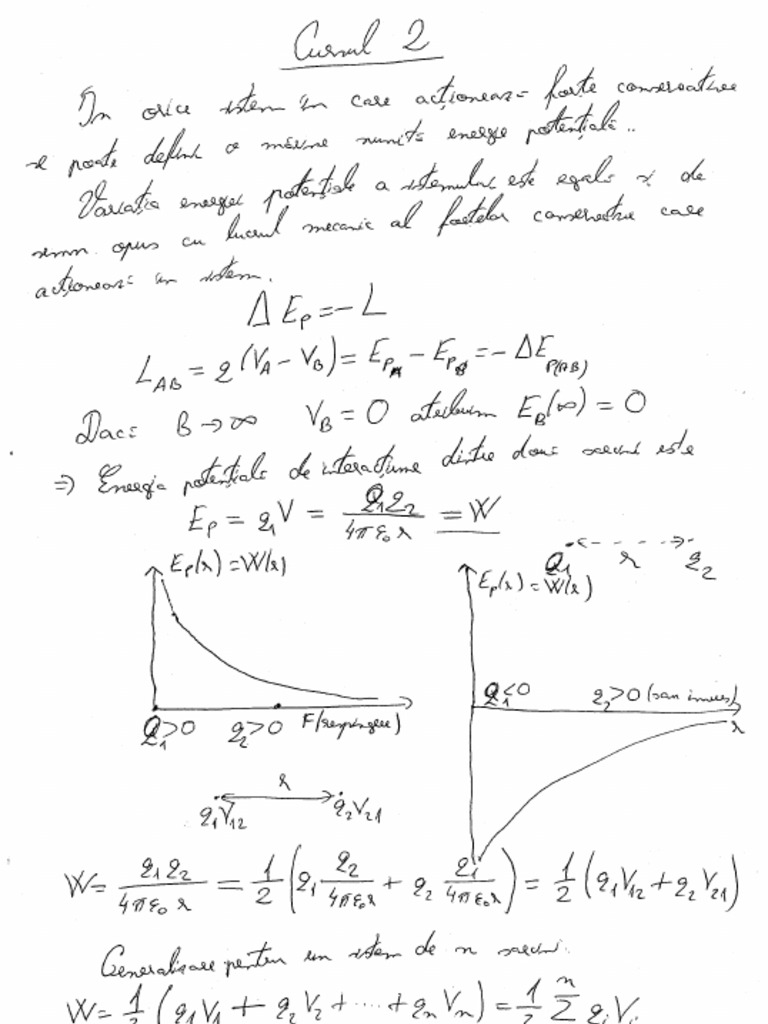 Cursul 2
În orice sistem în care acționează forțe conservative
se poate defini o mărime numită energie potențială..
Variația energiei potențiale a sistemului este egală și de
semn opus cu lucrul mecanic al forțelor conservative care
acționează în sistem.
Δ E_P = - L
L_AB = q (V_A - V_B) = E_PA - E_PB = - ΔE_P(AB)
Dacă B → ∞ V_B = 0 atribuim E_B(∞) = 0
⇒ Energia potențială de interacțiune dintre două sarcini este
E_P = q_1 V = Q_1 q_2 / 4πε_0 r = W
Q_1 r q_2
E_P(r) = W(r)
E_P(r) = W(r)
Q_1<0 q_2>0 (sau invers)
r
Q_1>0 q_2>0 F(respingere)
r
q_1V_12 q_2V_21
W = q_1 q_2 / 4πε_0 r = 1/2 (q_1 q_2 / 4πε_0 r + q_2 q_1 / 4πε_0 r) = 1/2 (q_1V_12 + q_2V_21)
Generalizare pentru un sistem de n sarcini.
W = 1/2 (q_1V_1 + q_2V_2 + .... + q_nV_n) = 1/2 Σ^n q_iV_i